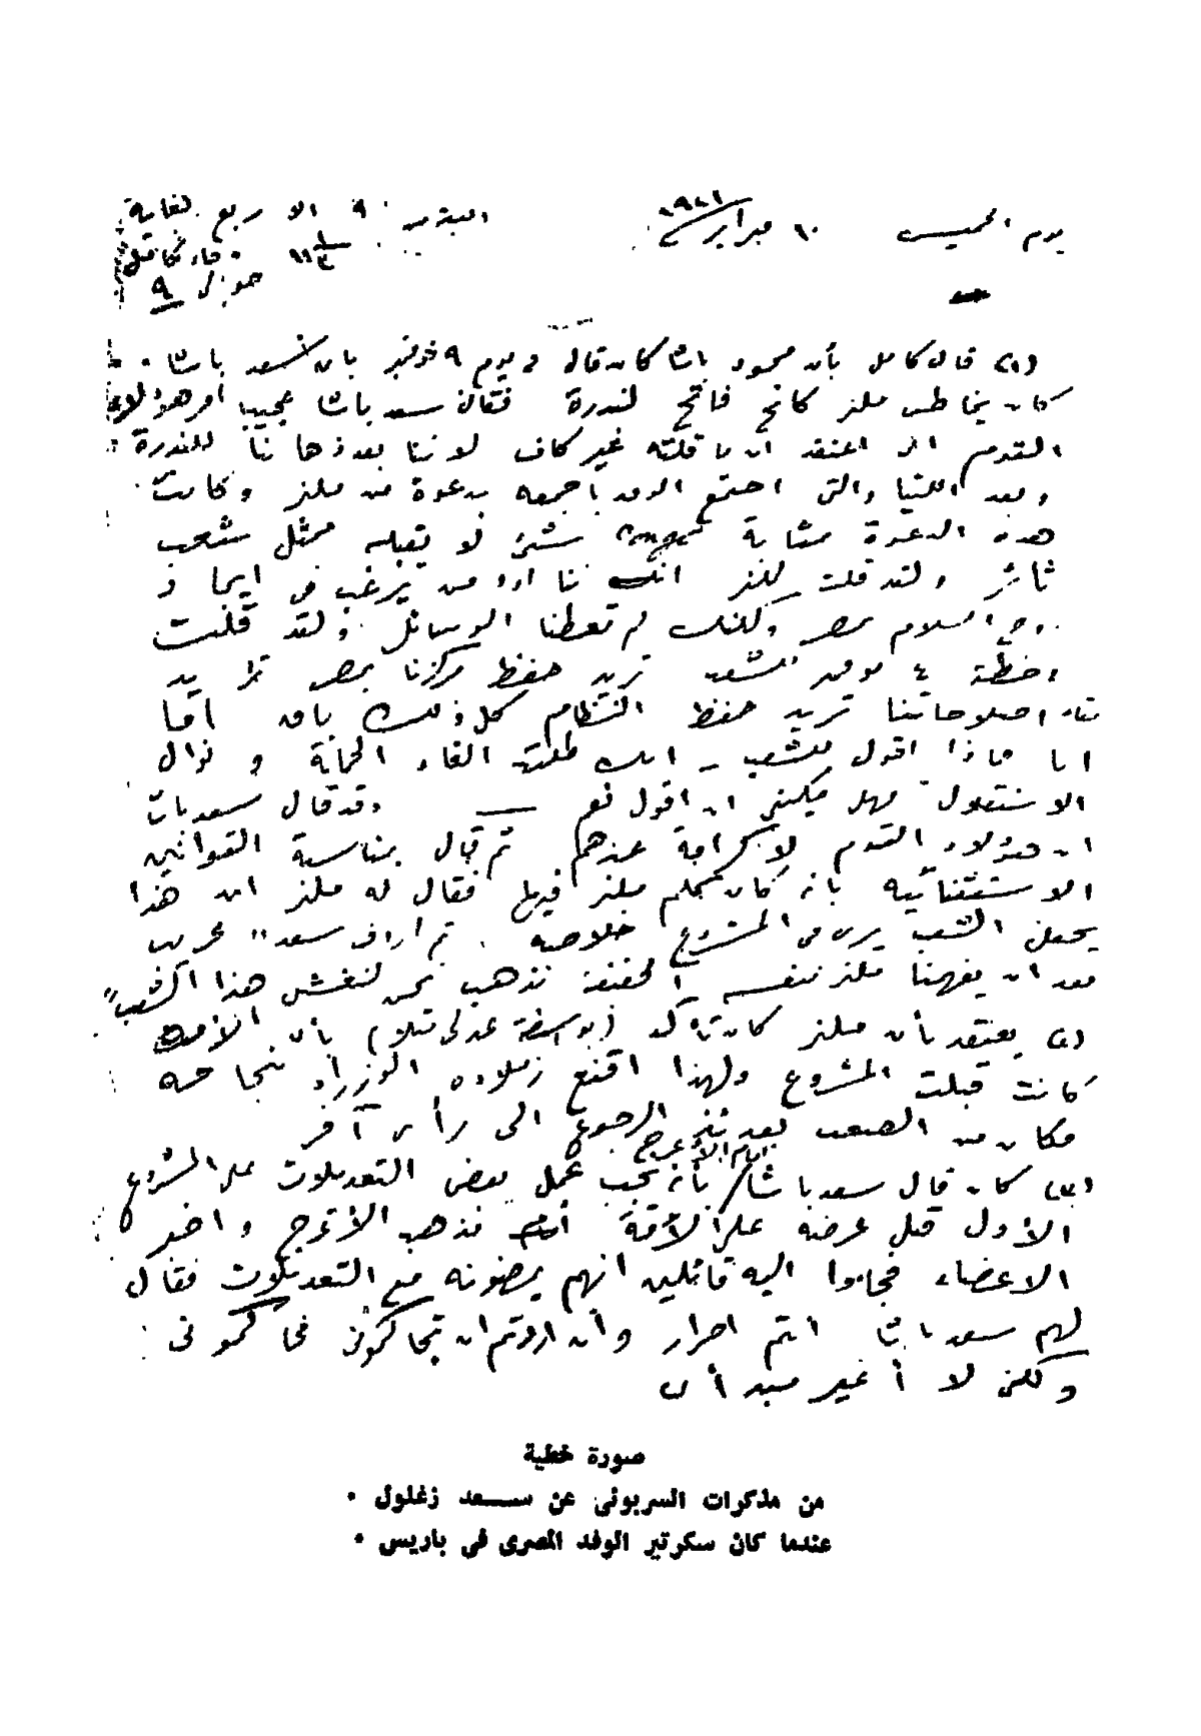 يوم الخميس ١٠ فبراير ١٩٢١ الابتداء ٩ الا ربع لغاية
(١) قال كامل بأن محمود باشا كان قال في يوم ٩ نوفمبر بأن سعد باشا
كان يخاطب ملنر كأنه فاتح لندرة فقال سعد باشا عجيبا أمر هؤلاء
القوم انى اعتقد ان ما قلته غير كاف لأننا بعد ذهابنا للندرة
وبعد اللتيا والتى اجتمع الوفد بأجمعه بدعوة من ملنر وكانت
هذه الدعوة بمثابة شئ لا يقبله ممثل شعب
ثائر ولقد قلت لملنر اننا اردت من يرغب فى ايجاد
روح السلام بمصر ولكنك لم تعطنا الوسائل ولقد قلت
للشعب تريد حفظ مركزنا بمصر
اصلاحاتنا تريد حفظ النظام كل ذلك باق أما
انا ماذا اقول للشعب - انك طلبت الغاء الحماية و نوال
الاستقلال فهل يمكننى ان اقول نعم — وقد قال سعد باشا
ان هؤلاء القوم لا كرامة عندهم ثم قال بمناسبة القوانين
الاستثنائية بأنه كان يكلم ملنر فيها فقال له ملنر ان هذا
يجعل الشعب يرى فى المشروع خلاصه . ثم اردف سعد "
بعد ان يفهمنا ملنر نفسه الحقيقة نذهب نحن لنغش هذا الشعب"
(٢) يعتقد بأن ملنر كان تأكد (بواسطة عدلى مثلا) بأن الأمة
كانت قبلت المشروع ولهذا اقنع زملاءه الوزراء بنجاحه
فكان من الصعب بعدئذ الرجوع الى رأى آخر
(٣) كان قال سعد باشا امام الأعرج بأنه يجب عمل بعض التعديلات على المشروع
الأول قبل عرضه على الأمة فذهب الأعرج واخبر
الاعضاء فجاءوا اليه قائلين انهم يمضونه مع التعديلات فقال
لهم سعد باشا أنتم احرار وأن اردتم ان تحاكمونى فحاكمونى
ولكن لا أغير مبدأى
صورة خطية
من مذكرات السربونى عن سعد زغلول .
عندما كان سكرتير الوفد المصرى فى باريس .